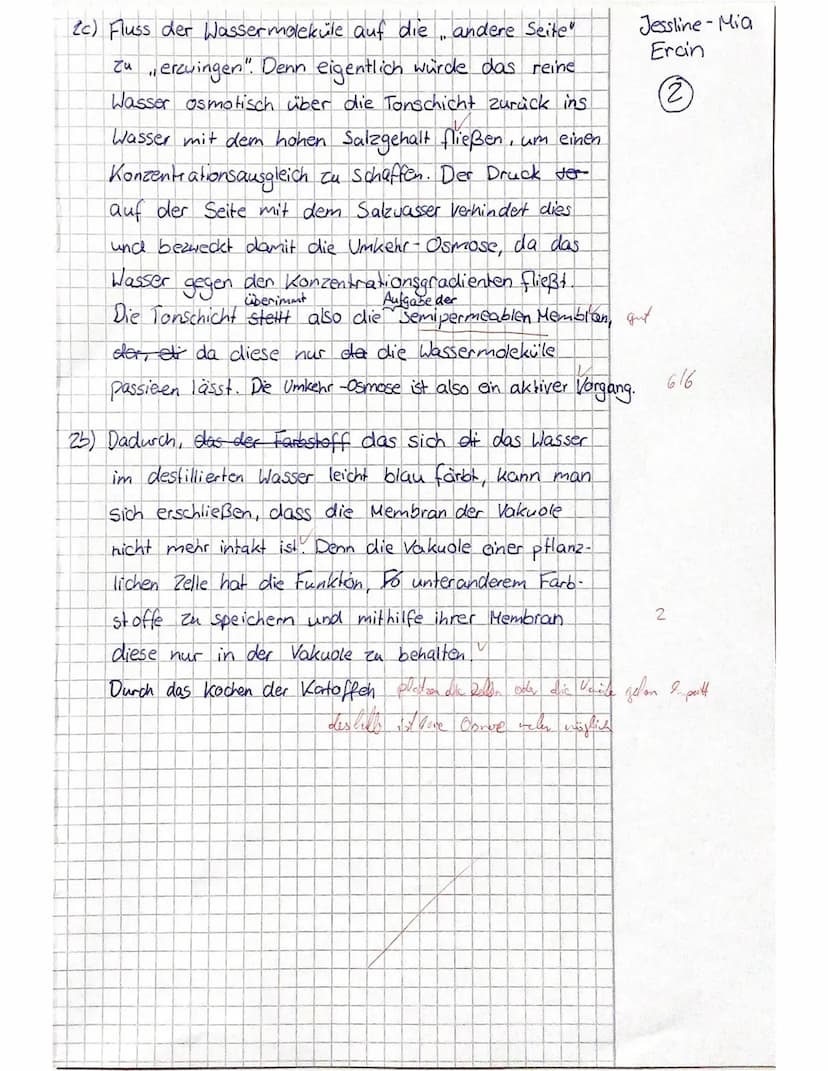 Jessline-Mia
Ercin
2
2c) Fluss der Wassermoleküle auf die „andere Seite"
zu „erzwingen". Denn eigentlich würde das reine
Wasser osmotisch über die Tonschicht zurück ins
Wasser mit dem hohen Salzgehalt fließen, um einen
Konzentrationsausgleich zu schaffen. Der Druck der
auf der Seite mit dem Salzwasser verhindert dies
und bezweckt damit die Umkehr-Osmose, da das
Wasser gegen den Konzentrationsgradienten fließt.
überimmt Aufgabe der
Die Tonschicht stellt also die semipermeablen Membran, gut
der, di da diese nur da die Wassermoleküle
passieren lässt. Die Umkehr-Osmose ist also ein aktiver Vorgang. 6/6
2b) Dadurch, das der Farbstoff das sich di das Wasser
im destillierten Wasser leicht blau färbt, kann man
sich erschließen, dass die Membran der Vakuole
nicht mehr intakt ist. Denn die Vakuole einer pflanz-
lichen Zelle hat die Funktion, Fö unteranderem Farb-
stoffe zu speichern und mithilfe ihrer Membran 2
diese nur in der Vakuole zu behalten.
Durch das Kochen der Kartoffeln platzen die Zellen oder die
deshalb ist keine Osmose mehr möglich